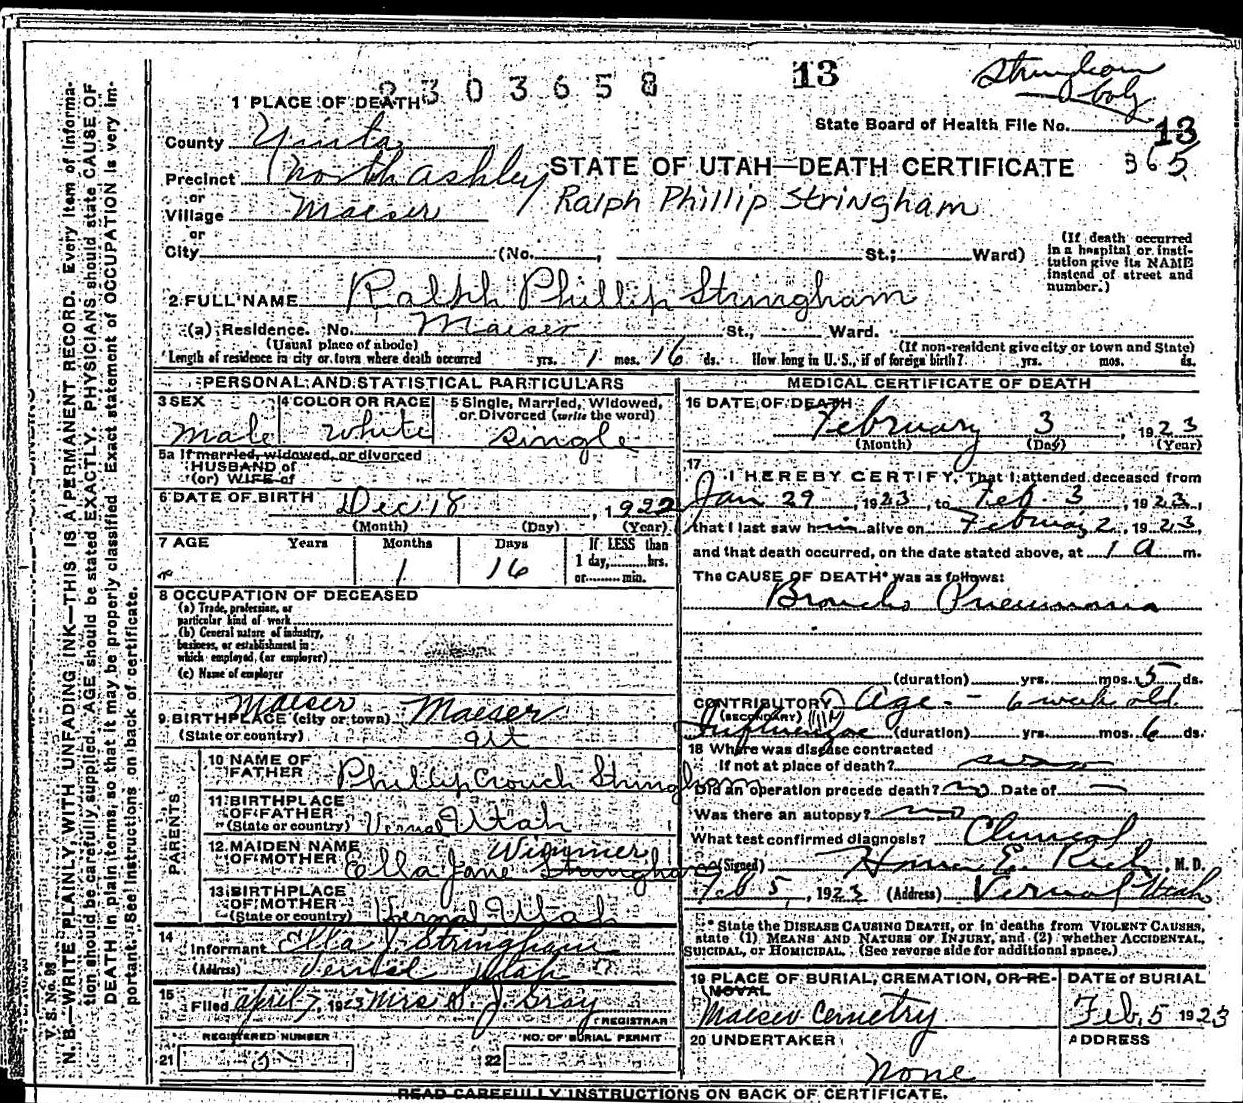 2303658
13
Stringham
boy
1 PLACE OF DEATH
State Board of Health File No. 13
365
County Uinta
Precinct North Ashley
STATE OF UTAH—DEATH CERTIFICATE
or
Village Maeser
Ralph Phillip Stringham
or
City (No., St.; Ward)
(If death occurred in a hospital or institution give its NAME instead of street and number.)
2 FULL NAME Ralph Phillip Stringham
(a) Residence. No. Maeser St., Ward.
(Usual place of abode) (If non-resident give city or town and State)
Length of residence in city or town where death occurred yrs. 1 mos. 16 ds. How long in U. S., if of foreign birth? yrs. mos. ds.
PERSONAL AND STATISTICAL PARTICULARS
3 SEX 4 COLOR OR RACE 5 Single, Married, Widowed, or Divorced (write the word)
Male white single
5a If married, widowed, or divorced
HUSBAND of
(or) WIFE of
6 DATE OF BIRTH Dec 18, 1922
(Month) (Day) (Year)
7 AGE Years Months Days If LESS than
1 16 1 day, hrs.
or min.
8 OCCUPATION OF DECEASED
(a) Trade, profession, or
particular kind of work
(b) General nature of industry,
business, or establishment in
which employed, (or employer)
(c) Name of employer
Maeser
9 BIRTHPLACE (city or town) Maeser
(State or country)
PARENTS
10 NAME OF
FATHER Phillip Crouch Stringham
11 BIRTHPLACE
OF FATHER
(State or country) Vernal Utah
12 MAIDEN NAME Wimmer
OF MOTHER Ella Jane Stringham
13 BIRTHPLACE
OF MOTHER
(State or country) Vernal Utah
14
Informant Ella J Stringham
(Address) Vernal Utah
15
Filed April 7, 1923 Mrs S. J. Gray
REGISTRAR
REGISTERED NUMBER NO. OF BURIAL PERMIT
21 22
MEDICAL CERTIFICATE OF DEATH
16 DATE OF DEATH
February 3, 1923
(Month) (Day) (Year)
17
I HEREBY CERTIFY, That I attended deceased from
Jan 29, 1923, to Feb. 3, 1923,
that I last saw him alive on February 2, 1923,
and that death occurred, on the date stated above, at 1 a m.
The CAUSE OF DEATH* was as follows:
Broncho Pneumonia
(duration) yrs. mos. 5 ds.
CONTRIBUTORY Age - 6 weeks old
(SECONDARY)
Influenzae (duration) yrs. mos. 6 ds.
18 Where was disease contracted
If not at place of death?
Did an operation precede death? no Date of —
Was there an autopsy? no
What test confirmed diagnosis? Clinical
(Signed) Homer E. Rich, M. D.
Feb 5, 1923 (Address) Vernal Utah
* State the DISEASE CAUSING DEATH, or in deaths from VIOLENT CAUSES,
state (1) MEANS AND NATURE OF INJURY, and (2) whether ACCIDENTAL,
SUICIDAL, or HOMICIDAL. (See reverse side for additional space.)
19 PLACE OF BURIAL, CREMATION, OR REMOVAL DATE of BURIAL
Maeser Cemetry Feb. 5 1923
20 UNDERTAKER ADDRESS
None
READ CAREFULLY INSTRUCTIONS ON BACK OF CERTIFICATE.
V. S. No. 98
N. B.—WRITE PLAINLY, WITH UNFADING INK—THIS IS A PERMANENT RECORD. Every item of informa-
tion should be carefully supplied. AGE should be stated EXACTLY. PHYSICIANS should state CAUSE OF
DEATH in plain terms, so that it may be properly classified. Exact statement of OCCUPATION is very im-
portant. See instructions on back of certificate.